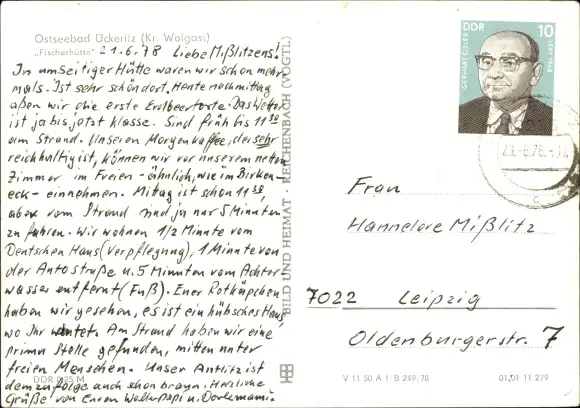 Ostseebad Ückeritz (Kr. Wolgast)
„Fischerhütte"
21.6.78 Liebe Mißlitzens!
In umseitiger Hütte waren wir schon mehr-
mals. Ist sehr schön dort. Heute nachmittag
aßen wir die erste Erdbeertorte. Das Wetter
ist ja bis jetzt Klasse. Sind früh bis 11 30
am Strand. Unseren Morgenkaffee, der sehr
reichhaltig ist, können wir vor unserem netten
Zimmer im Freien - ähnlich, wie im Birken-
eck - einnehmen. Mittag ist schon 11 30,
aber vom Strand sind ja nur 5 Minuten
zu fahren. Wir wohnen 1/2 Minute vom
Deutschen Haus (Verpflegung), 1 Minute von
der Autostraße u. 5 Minuten vom Achter-
wasser entfernt (Fuß). Euer Rotkäppchen
haben wir gesehen, es ist ein hübsches Haus,
wo Ihr wart. Am Strand haben wir eine
prima Stelle gefunden, mitten unter
freien Menschen. Unser Antlitz ist
demzufolge auch schon braun. Herzliche
Grüße von Euren Walterpapi u.
DDR 0,25 M
BILD UND HEIMAT · REICHENBACH (VOGTL)
DDR 10
GERHART EISLER 1897-1968
23.-6.78.-
c
Frau
Hannelore Mißlitz
7022 Leipzig
Oldenburgerstr. 7
V 11 50 A 1 B 249/78
01 01 11 279